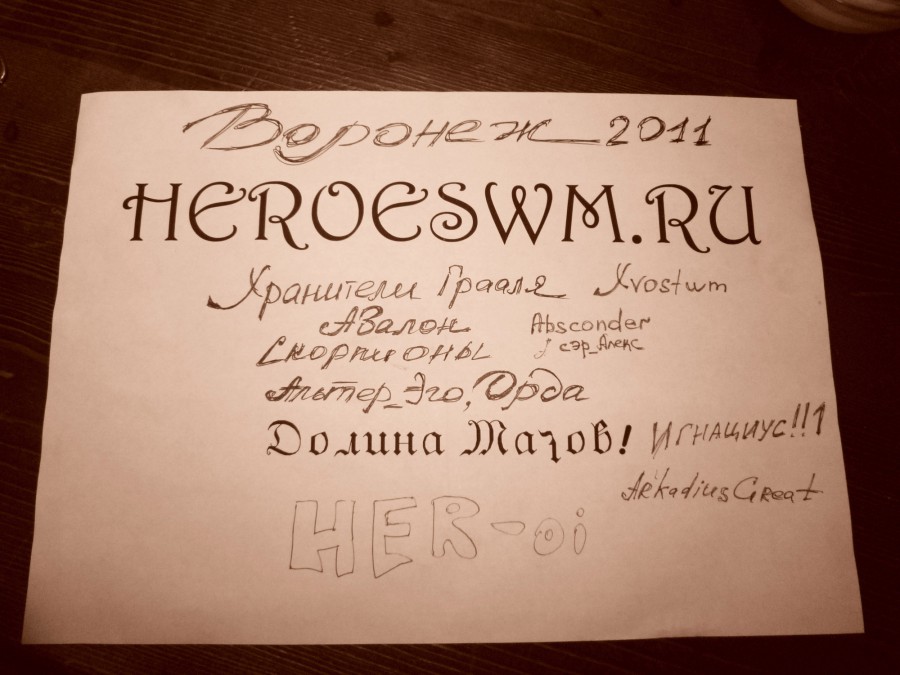 Воронеж 2011
HEROESWM.RU
Хранители Грааля Xvostwm
Авалон Absconder
Скорпионы сэр_Алекс
Альтер_Эго, Орда
Долина Магов! Игнациус!!1
ArkadiusGreat
HER-oi